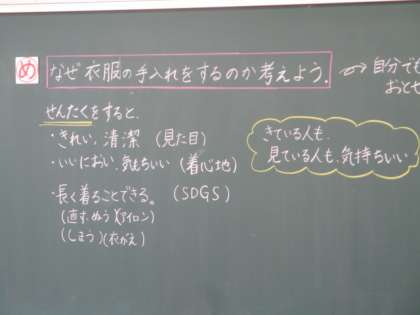 め なぜ衣服の手入れをするのか考えよう。 → 自分でも
おとせ
せんたくをすると、
・きれい、清潔(見た目)
・いいにおい、気もちいい(着心地)
・長く着ることできる。(SDGS)
(直す、ぬう)(アイロン)
(しまう)(衣がえ)
きている人も、
見ている人も、気持ちいい